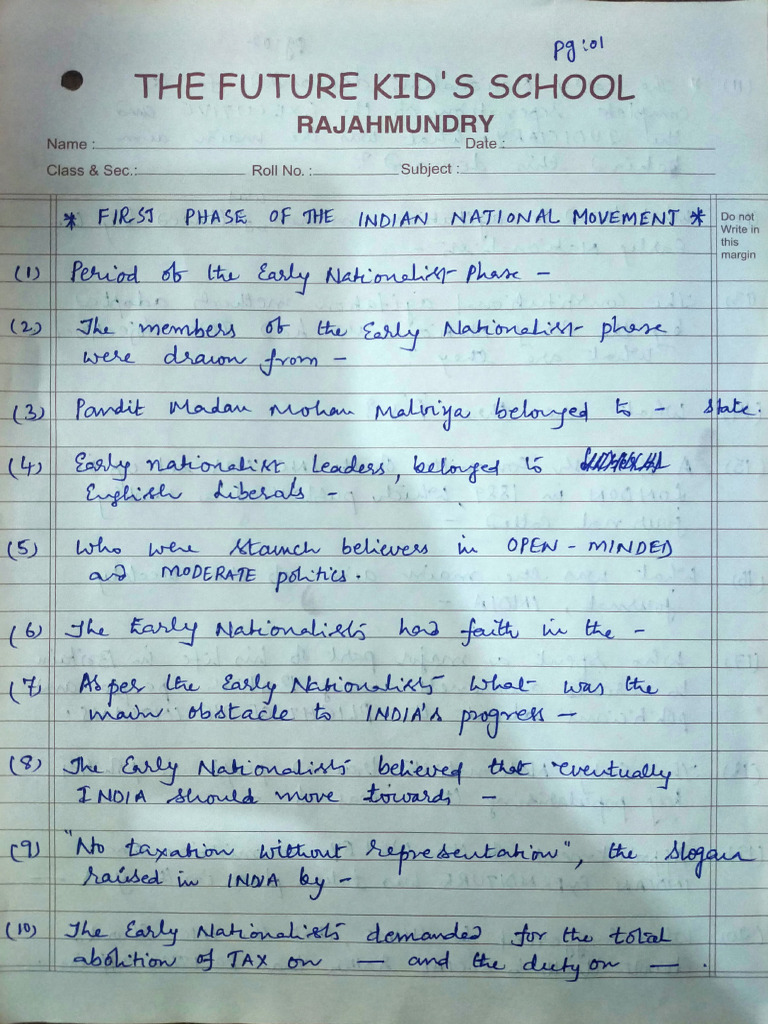 pg:01
THE FUTURE KID'S SCHOOL
RAJAHMUNDRY
Name : Date :
Class & Sec.: Roll No. : Subject :
* FIRST PHASE OF THE INDIAN NATIONAL MOVEMENT *
Do not
Write in
this
margin
(1) Period of the Early Nationalist Phase -
(2) The members of the Early Nationalist phase
were drawn from -
(3) Pandit Madan Mohan Malviya belonged to - State.
(4) Early nationalist Leaders, belonged to
English Liberals -
(5) Who were staunch believers in OPEN - MINDED
and MODERATE politics.
(6) The Early Nationalists had faith in the -
(7) As per the Early Nationalists what was the
main obstacle to INDIA's progress -
(8) The Early Nationalists believed that eventually
INDIA should move towards -
(9) "No taxation without representation", the slogan
raised in INDIA by -
(10) The Early Nationalists demanded for the total
abolition of TAX on — and the duty on — .